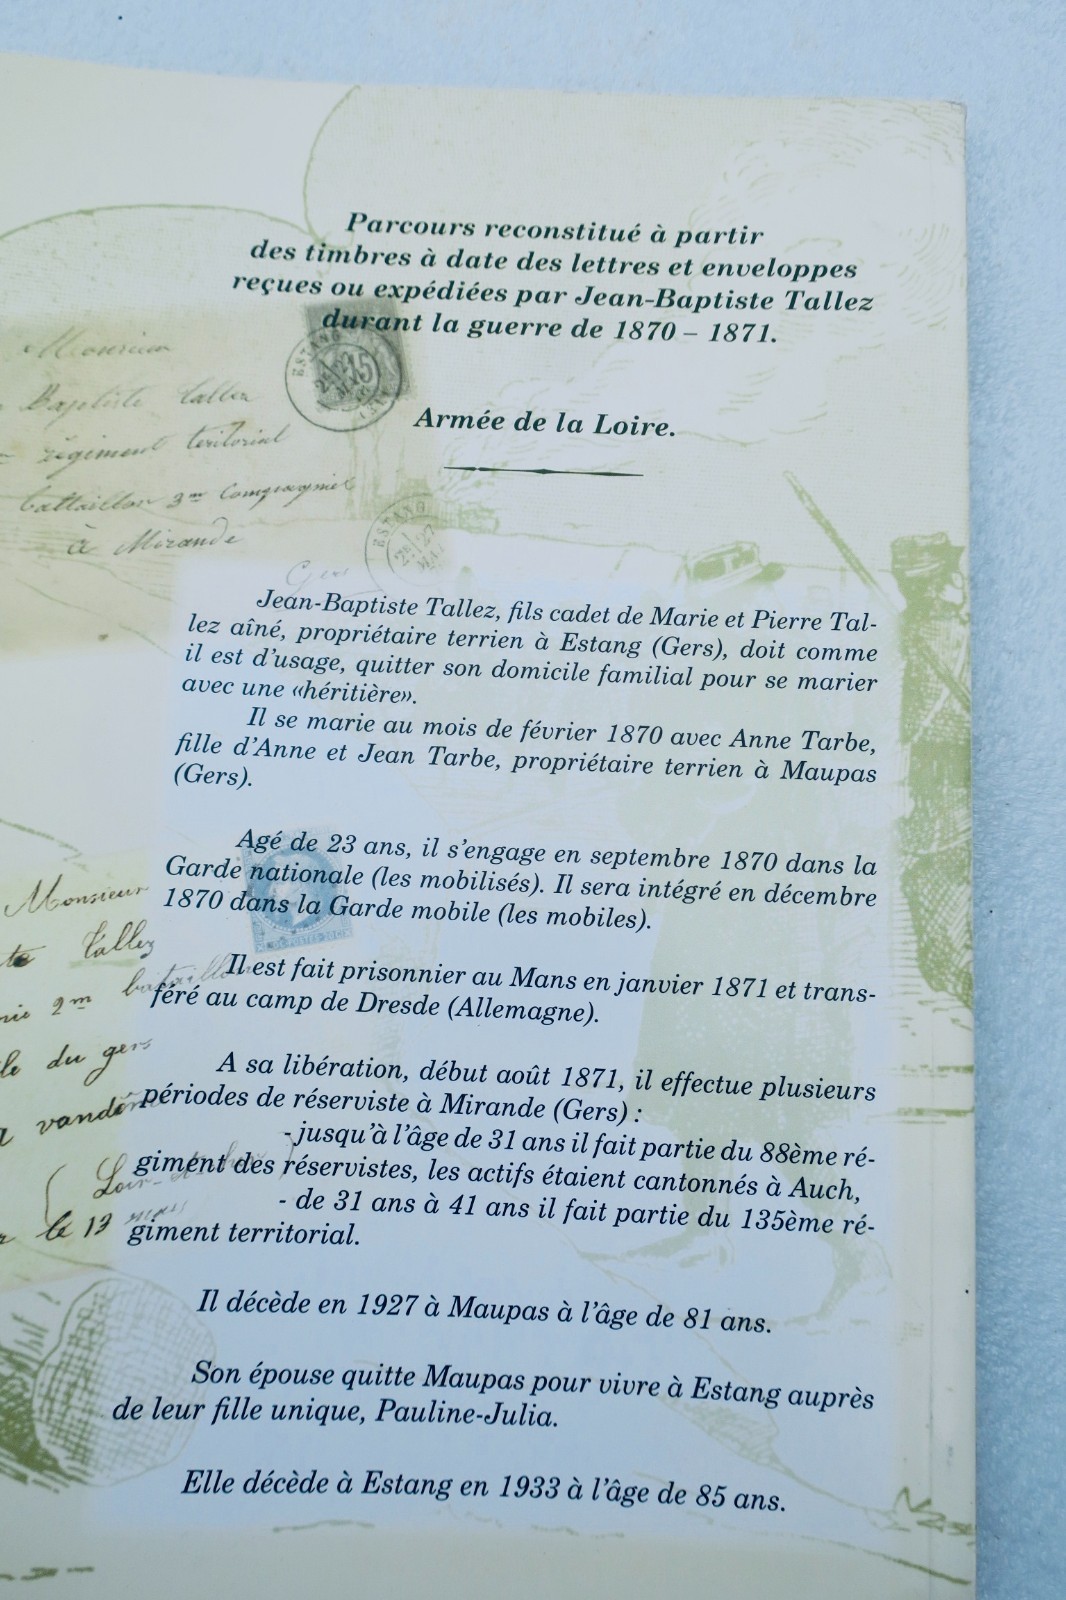 Parcours reconstitué à partir
des timbres à date des lettres et enveloppes
reçues ou expédiées par Jean-Baptiste Tallez
durant la guerre de 1870 – 1871.
Armée de la Loire.
Monsieur
Baptiste Tallez
régiment teritorial
battaillon 3me Compagnie
à Mirande
Gers
ESTANG
15
ESTANG
Jean-Baptiste Tallez, fils cadet de Marie et Pierre Tal-
lez aîné, propriétaire terrien à Estang (Gers), doit comme
il est d'usage, quitter son domicile familial pour se marier
avec une «héritière».
Il se marie au mois de février 1870 avec Anne Tarbe,
fille d'Anne et Jean Tarbe, propriétaire terrien à Maupas
(Gers).
Agé de 23 ans, il s'engage en septembre 1870 dans la
Garde nationale (les mobilisés). Il sera intégré en décembre
1870 dans la Garde mobile (les mobiles).
Il est fait prisonnier au Mans en janvier 1871 et trans-
féré au camp de Dresde (Allemagne).
A sa libération, début août 1871, il effectue plusieurs
périodes de réserviste à Mirande (Gers) :
- jusqu'à l'âge de 31 ans il fait partie du 88ème ré-
giment des réservistes, les actifs étaient cantonnés à Auch,
- de 31 ans à 41 ans il fait partie du 135ème ré-
giment territorial.
Il décède en 1927 à Maupas à l'âge de 81 ans.
Son épouse quitte Maupas pour vivre à Estang auprès
de leur fille unique, Pauline-Julia.
Elle décède à Estang en 1933 à l'âge de 85 ans.
Monsieur
te Tallez
nie 2me bataillon
le du gers
le 13